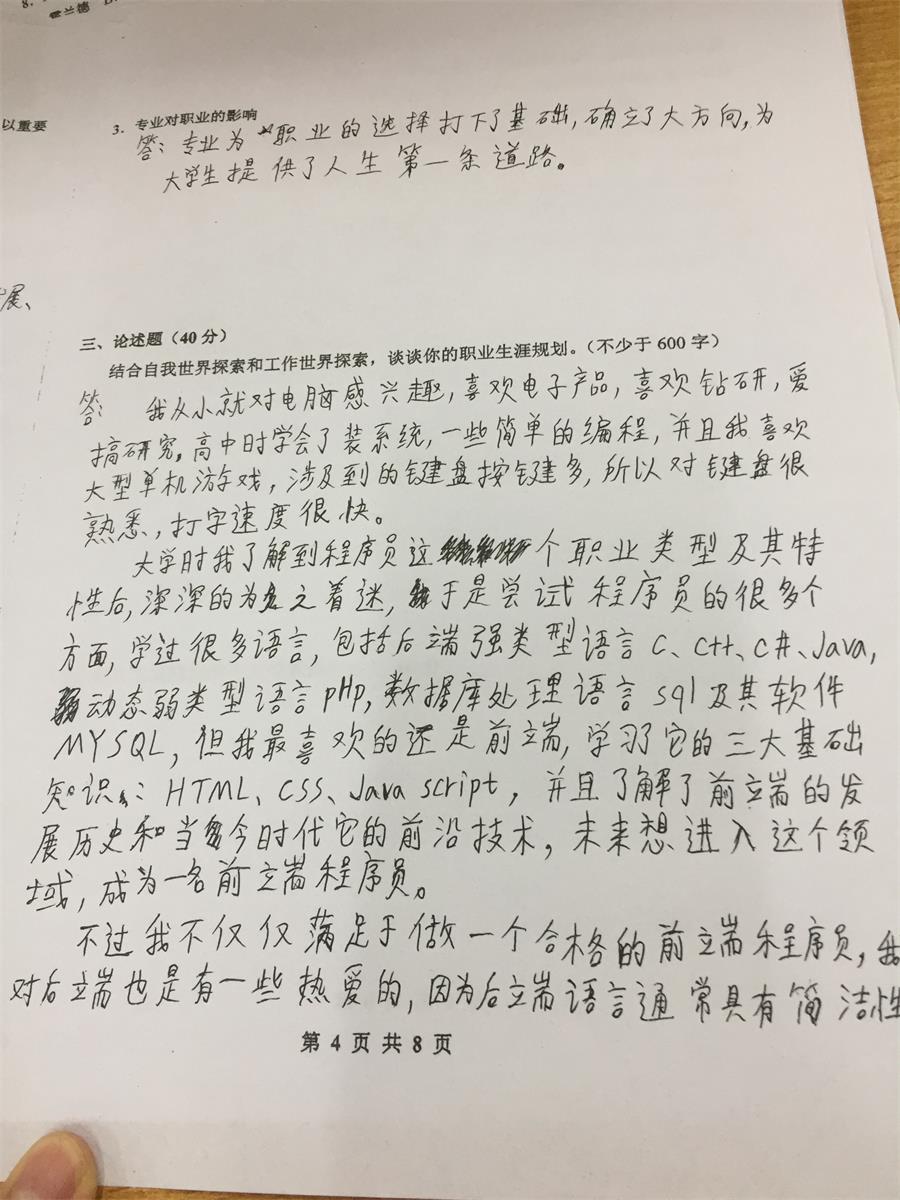 8.
霍兰德
以重要
3. 专业对职业的影响
答:专业为职业的选择打下了基础,确立了大方向,为
大学生提供了人生第一条道路。
展、
三、论述题(40分)
结合自我世界探索和工作世界探索,谈谈你的职业生涯规划。(不少于600字)
答: 我从小就对电脑感兴趣,喜欢电子产品,喜欢钻研,爱
搞研究。高中时学会了装系统,一些简单的编程,并且我喜欢
大型单机游戏,涉及到的键盘按键多,所以对键盘很
熟悉,打字速度很快。
大学时我了解到程序员这个职业类型及其特
性后,深深的为之着迷,于是尝试程序员的很多个
方面,学过很多语言,包括后端强类型语言C、C++、C#、Java,
动态弱类型语言pHp,数据库处理语言sql及其软件
MYSQL,但我最喜欢的还是前端,学习了它的三大基础
知识:HTML、CSS、Java script,并且了解了前端的发
展历史和当今时代它的前沿技术,未来想进入这个领
域,成为一名前端程序员。
不过我不仅仅满足于做一个合格的前端程序员,我
对后端也是有一些热爱的,因为后端语言通常具有简洁性
第 4 页 共 8 页